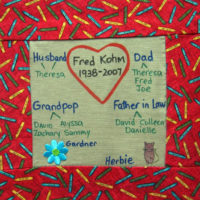 Husband
Theresa
Fred Kohm
1938-2007
Dad
Theresa
Fred
Joe
Grandpop
Devin Alyssa
Zachary Sammy
Father in Law
David Colleen
Danielle
Gardner
Herbie